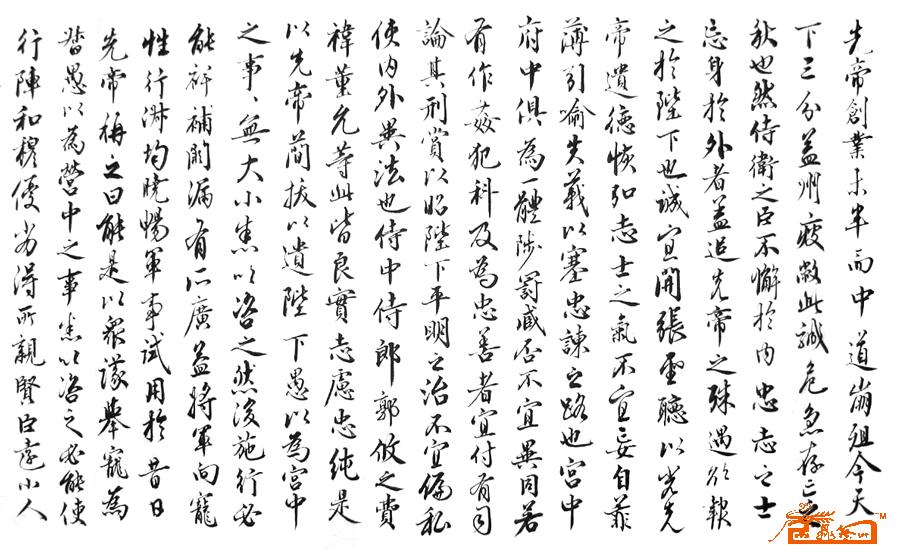 先帝創業未半而中道崩殂今天
下三分益州疲敝此誠危急存亡之
秋也然侍衛之臣不懈於內忠志之士
忘身於外者蓋追先帝之殊遇欲報
之於陛下也誠宜開張聖聽以光先
帝遺德恢弘志士之氣不宜妄自菲
薄引喻失義以塞忠諫之路也宮中
府中俱為一體陟罰臧否不宜異同若
有作姦犯科及為忠善者宜付有司
論其刑賞以昭陛下平明之治不宜偏私
使內外異法也侍中侍郎郭攸之費
禕董允等此皆良實志慮忠純是
以先帝簡拔以遺陛下愚以為宮中
之事事無大小悉以咨之然後施行必
能裨補闕漏有所廣益將軍向寵
性行淑均曉暢軍事試用於昔日
先帝稱之曰能是以眾議舉寵為
督愚以為營中之事悉以咨之必能使
行陣和穆優劣得所親賢臣遠小人